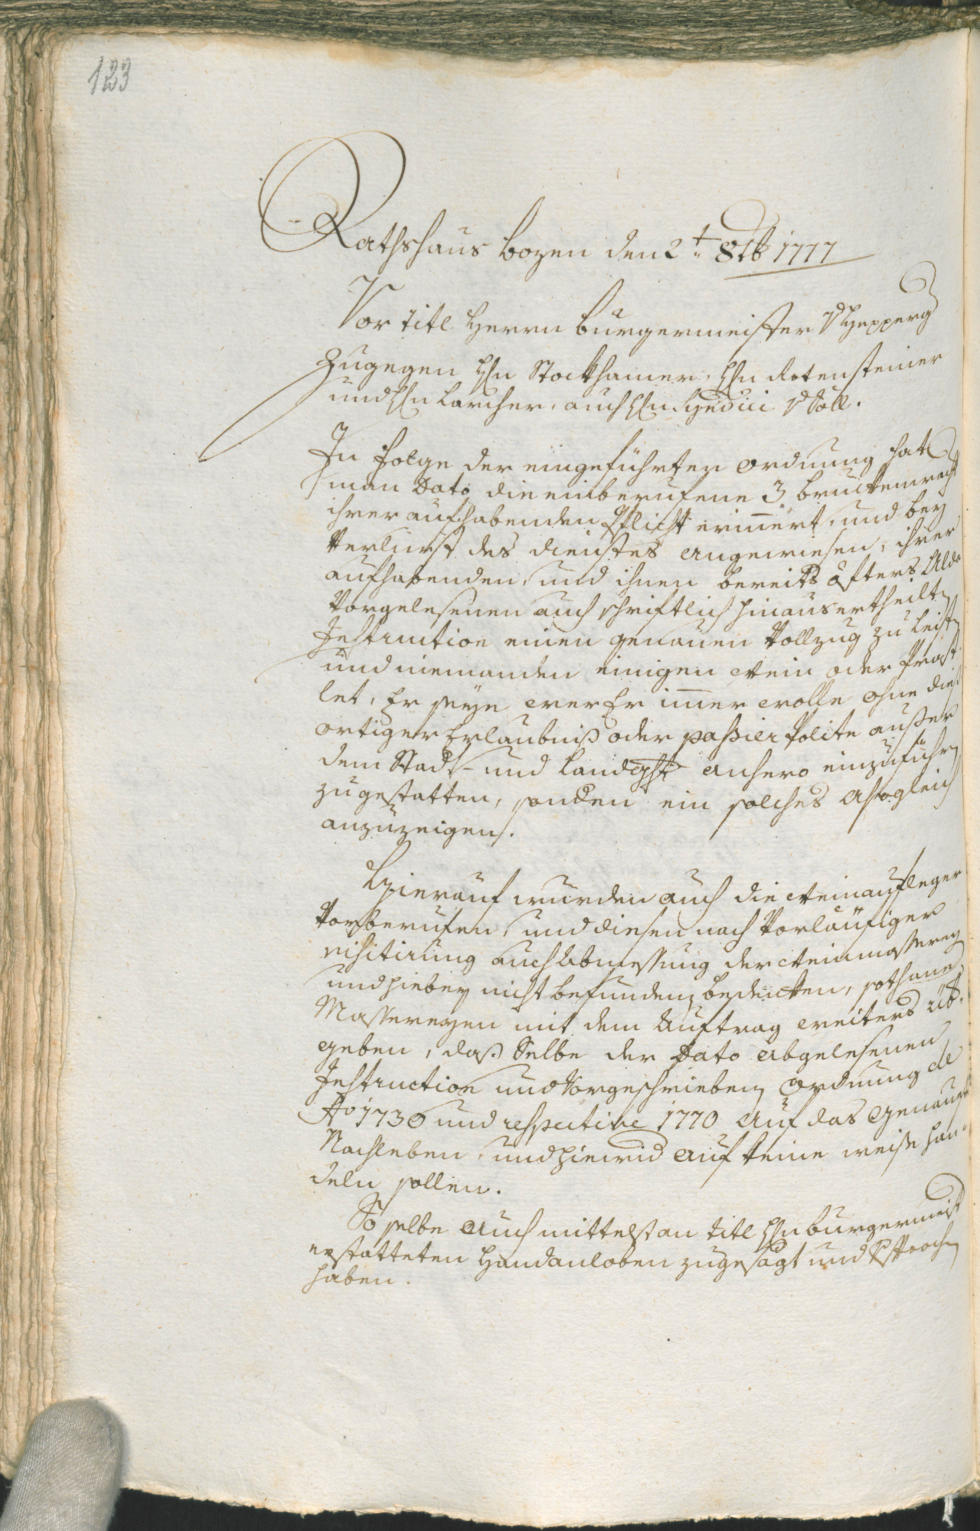 123
Rathshaus Bozen den 2t. 8tb 1777
Vor titl Herrn Burgermeister v Hepperg
Zugegen Hn Stockhamer, Hn Rotensteiner
und Hn Larcher, auch Hn Syndici v Söll.
In Folge der eingeführten Ordnung hat
man Dato die einberufene 3 Bruckenwacht
ihrer aufhabenden Pflicht erinnert, und bey
Verlurst des Dienstes angewiesen, ihrer
aufhabenden, und ihnen bereits öfters
vorgelesenen auch schriftlich hinausertheilten
Instruction einen genauen Vollzug zu leisten
und niemanden einigen Wein oder Prast
let, Er seye wer Er immer wolle ohne dies
ortiger Erlaubniß oder passier Polite ausser
dem Stadt- und Landgricht anhero einzuführen
zugestatten, sonden ein solches alsogleich
anzuzeigen.
Hierauf wurden auch die Weinaufleger
vorberufen, und diesen nach vorläufiger
visitirung auch Abmessung der Weinmassereyen
und hiebey nicht befundenen bedencken, sothane
Massereyen mit dem Auftrag weiters üb
geben, daß Selbe der Dato abgelesenen
Instruction und vorgeschriebenen Ordnung de
Ao 1730 und respective 1770 auf das genauiste
Nachleben, und hierwid auf keine weise han
deln sollen.
So selbe auch mittelst an titl Hn Burgermeist
erstatteten Handanloben zugesagt und vsprochen
haben.